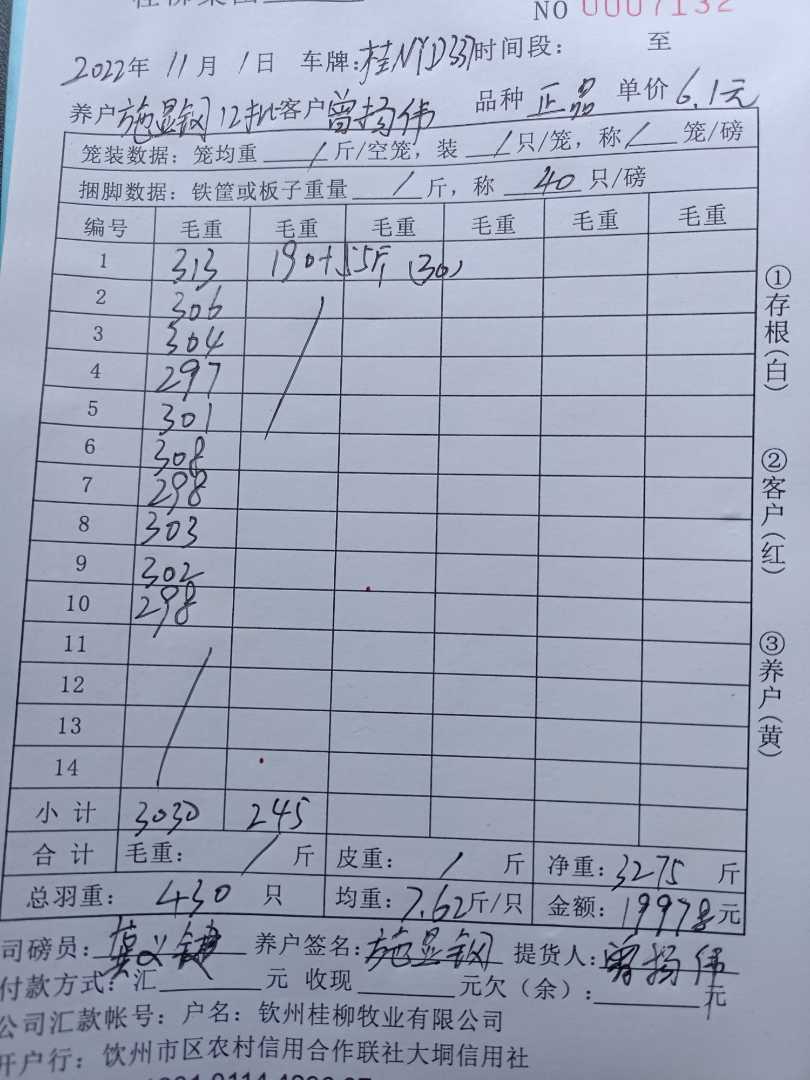 NO 0007132
2022年 11月 1日 车牌:桂NYD337 时间段: 至
养户施显钢12批客户曾扬伟 品种 正品 单价6.1元
笼装数据: 笼均重 / 斤/空笼, 装 / 只/笼, 称 / 笼/磅
捆脚数据: 铁筐或板子重量 / 斤, 称 40 只/磅
编号 毛重 毛重 毛重 毛重 毛重 毛重
1 313 190+55斤 (30)
2 306
3 304
4 297
5 301
6 308
7 298
8 303
9 302
10 298
11
12
13
14
小计 3030 245
合计 毛重: / 斤 皮重: / 斤 净重: 3275 斤
总羽重: 430 只 均重: 7.62斤/只 金额: 19978元
司磅员: 莫义键 养户签名: 施显钢 提货人: 曾扬伟
付款方式: 汇 元 收现 元欠(余): 元
公司汇款帐号: 户名: 钦州桂柳牧业有限公司
开户行: 钦州市区农村信用合作联社大垌信用社
①存根(白) ②客户(红) ③养户(黄)